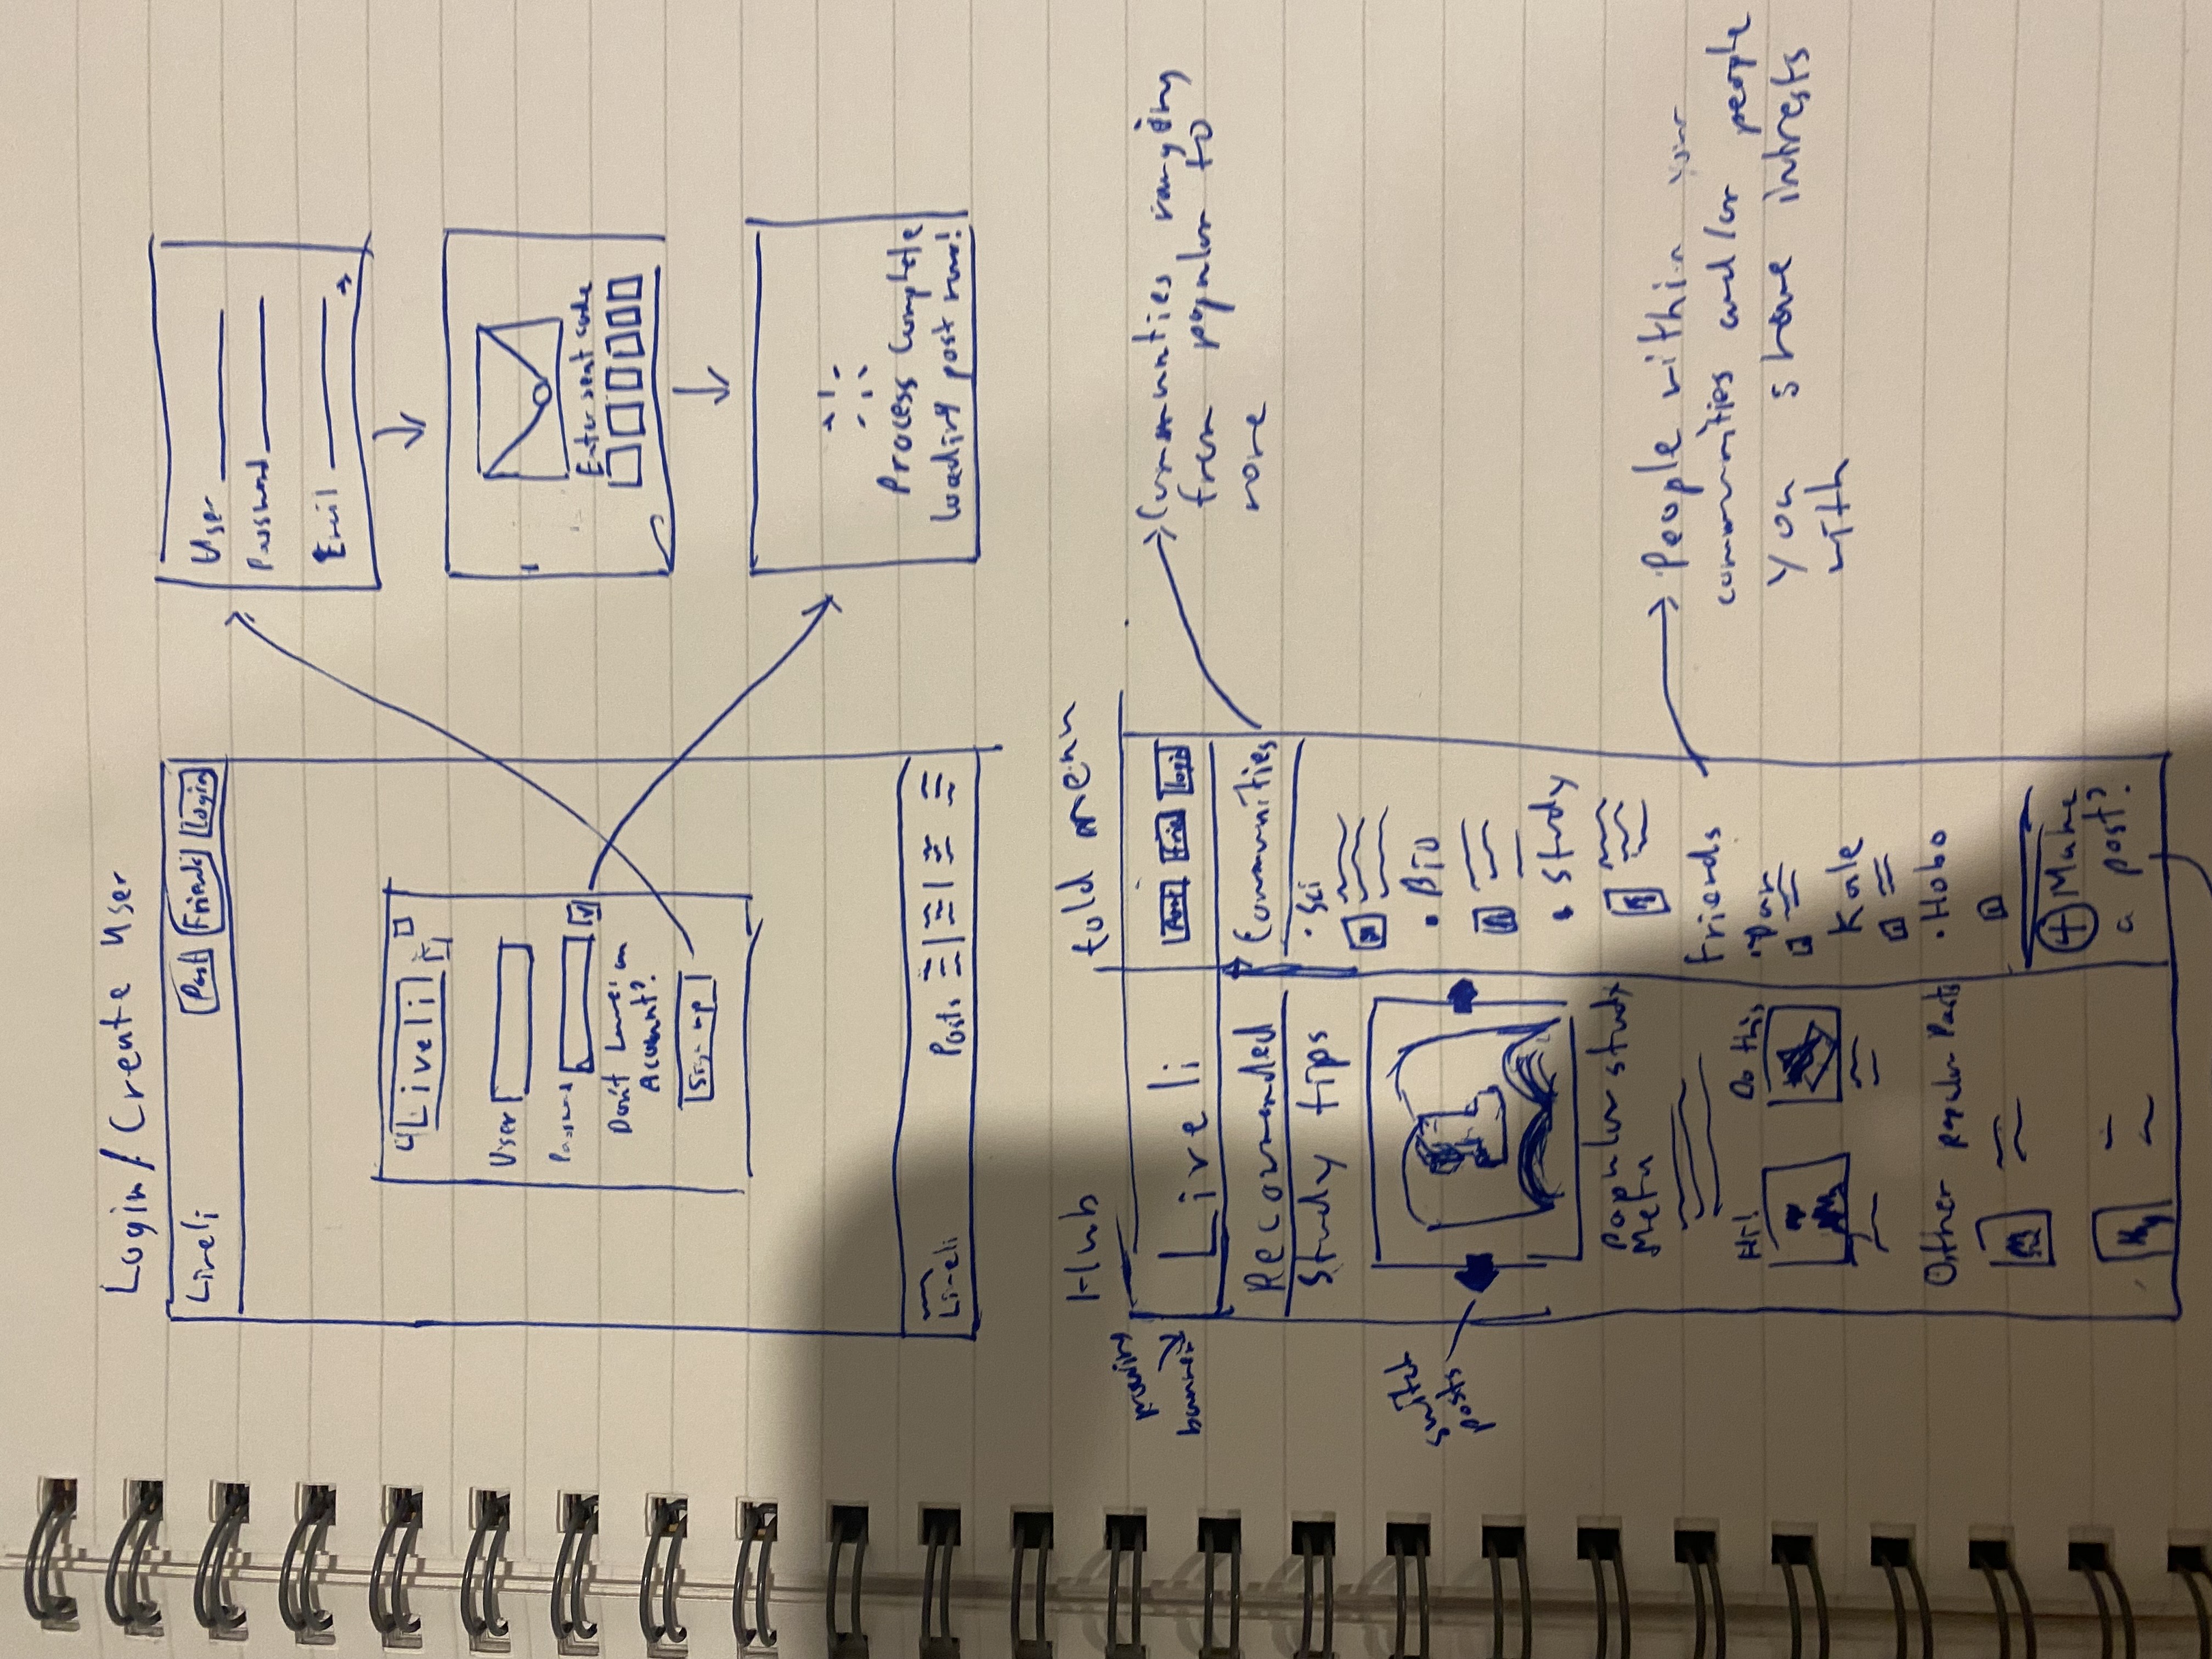 Login/Create User
Liveli
Post Friends Login
Liveli
User
Password
Don't have an
Account?
Sign up
Liveli
Posts
User
Password
Email
Enter sent code
Process Complete
loading post now!
Hub
fold menu
moving
banner
Liveli
Post Frie Login
Recommended
Study tips
switch
posts
Popular study
Meta
Hi!
Do this
Other popular Posts
Communities
• Sci
• Bio
• Study
Friends
• Dan
Kale
• Hobo
+ Make
a post?
Communities ranging
from popular to
none
People within your
communities and/or people
you share intrests
with